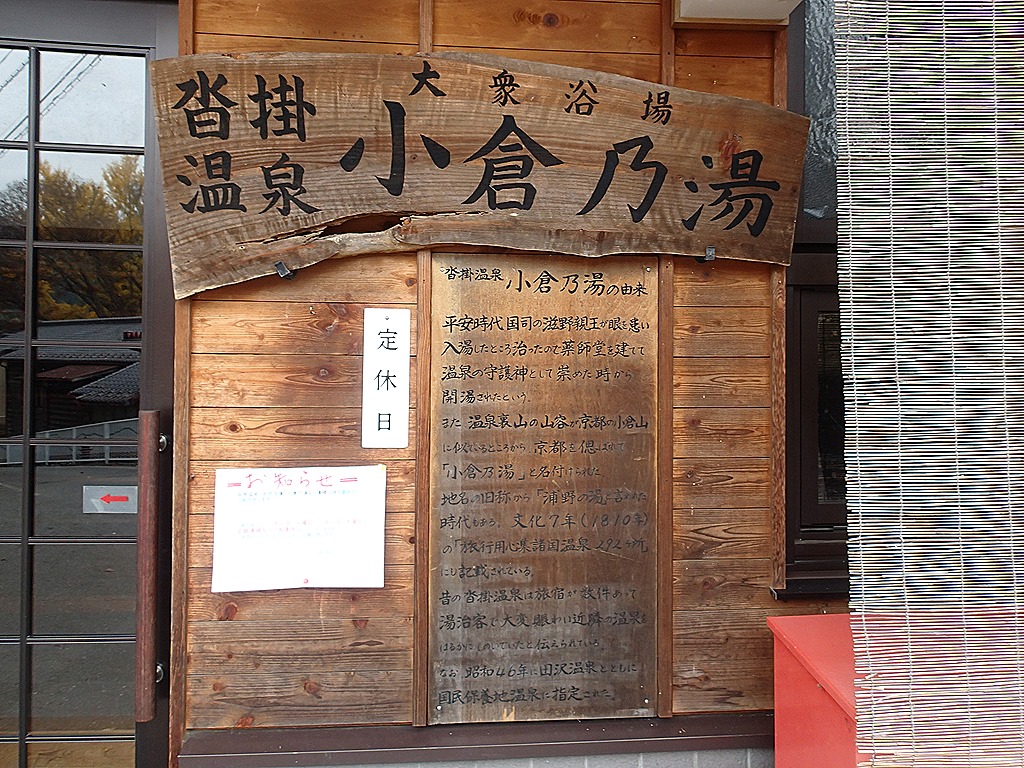 大衆浴場
沓掛
温泉
小倉乃湯
沓掛温泉 小倉乃湯の由来
平安時代国司の滋野親王が眼を患い
入湯したところ治ったので薬師堂を建てて
温泉の守護神として崇めた時から
開湯されたという。
また 温泉裏山の山容が京都の小倉山
に似ているところから 京都を偲ばれて
「小倉乃湯」と名付けられた
地名の旧称から「浦野の湯」と言われた
時代もある。文化7年(1810年)
の「旅行用心集諸国温泉292ヶ所
にも記載されている。
昔の沓掛温泉は旅宿が数件あって
湯治客で大変賑わい近隣の温泉を
はるかにしのいでいたと伝えられている。
なお 昭和46年に田沢温泉とともに
国民保養地温泉に指定された。
定休日
=お知らせ=